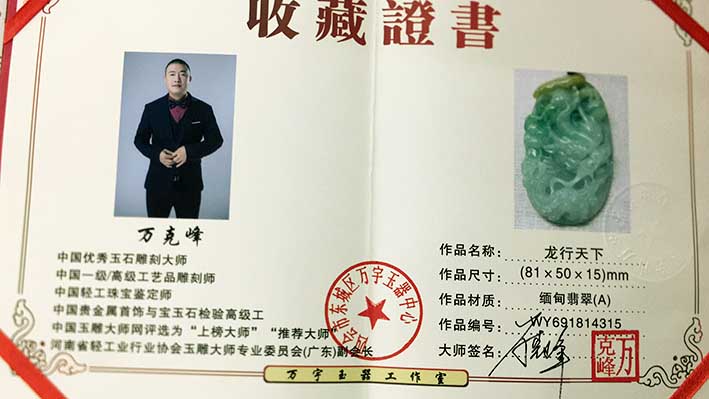 收藏證書
万克峰
中国优秀玉石雕刻大师
中国一级/高级工艺品雕刻师
中国轻工珠宝鉴定师
中国贵金属首饰与宝玉石检验高级工
中国玉雕大师网评选为“上榜大师”“推荐大师”
河南省轻工业行业协会玉雕大师专业委员会(广东)副会长
会市东城区万宇玉器中心
作品名称: 龙行天下
作品尺寸: (81×50×15)mm
作品材质: 缅甸翡翠(A)
作品编号: WY691814315
大师签名:
万克峰
万宇玉器工作室